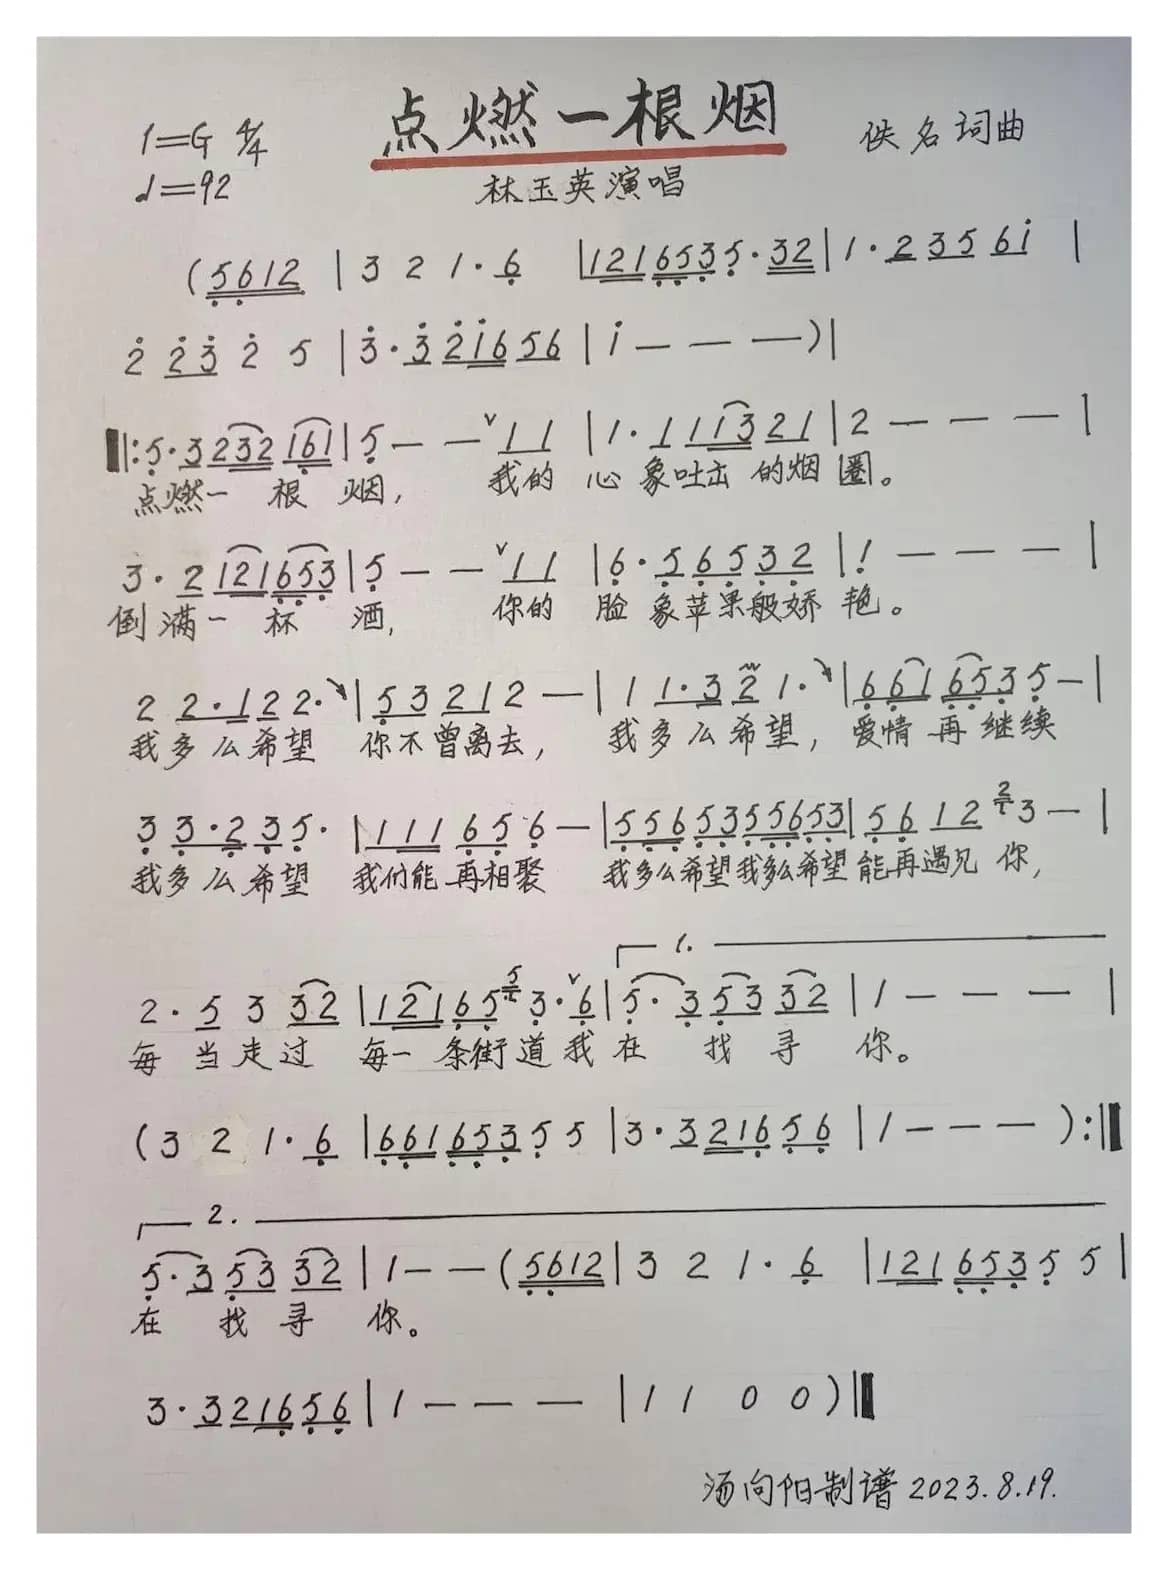 点燃一根烟
1=G 4/4
佚名词曲
♩=92
林玉英演唱
(5612 | 3 2 1· 6 | 121653 5· 32 | 1· 2 3 5 6 i |
2 2 3 2 5 | 3· 3 2 i 6 5 6 | i — — — ) |
‖: 5· 3 232 161 | 5 — — ˅ 1 1 | 1· 1 1 1 3 2 1 | 2 — — — |
点燃一 根 烟, 我的 心 象吐出 的烟 圈。
3· 2 121 653 | 5 — — ˅ 1 1 | 6· 5 6 5 3 2 | 1 — — — |
倒满一 杯 酒, 你的 脸 象苹果般娇 艳。
2 2· 1 2 2· | 5 3 2 1 2 — | 1 1· 3 2 1· | 6 6 1 6 5 3 5 — |
我多么希望 你不曾离去, 我多么希望, 爱情 再 继续
3 3· 2 3 5· | 1 1 1 6 5 6 — | 5 5 6 5 3 5 5 6 5 3 | 5 6 1 2 2 3 — |
我多么希望 我们能 再相聚 我多么希望我多么希望 能再遇见 你,
1.
2· 5 3 3 2 | 1 2 1 6 5 5 3· ˅ 6 | 5· 3 5 3 3 2 | 1 — — — |
每 当走过 每一 条街道我 在 找 寻 你。
(3 2 1· 6 | 6 6 1 6 5 3 5 5 | 3· 3 2 1 6 5 6 | 1 — — — ) :‖
2.
5· 3 5 3 3 2 | 1 — — (5612 | 3 2 1· 6 | 1 2 1 6 5 3 5 5 |
在 找 寻 你。
3· 3 2 1 6 5 6 | 1 — — — | 1 1 0 0 ) ‖
汤向阳制谱 2023.8.19.